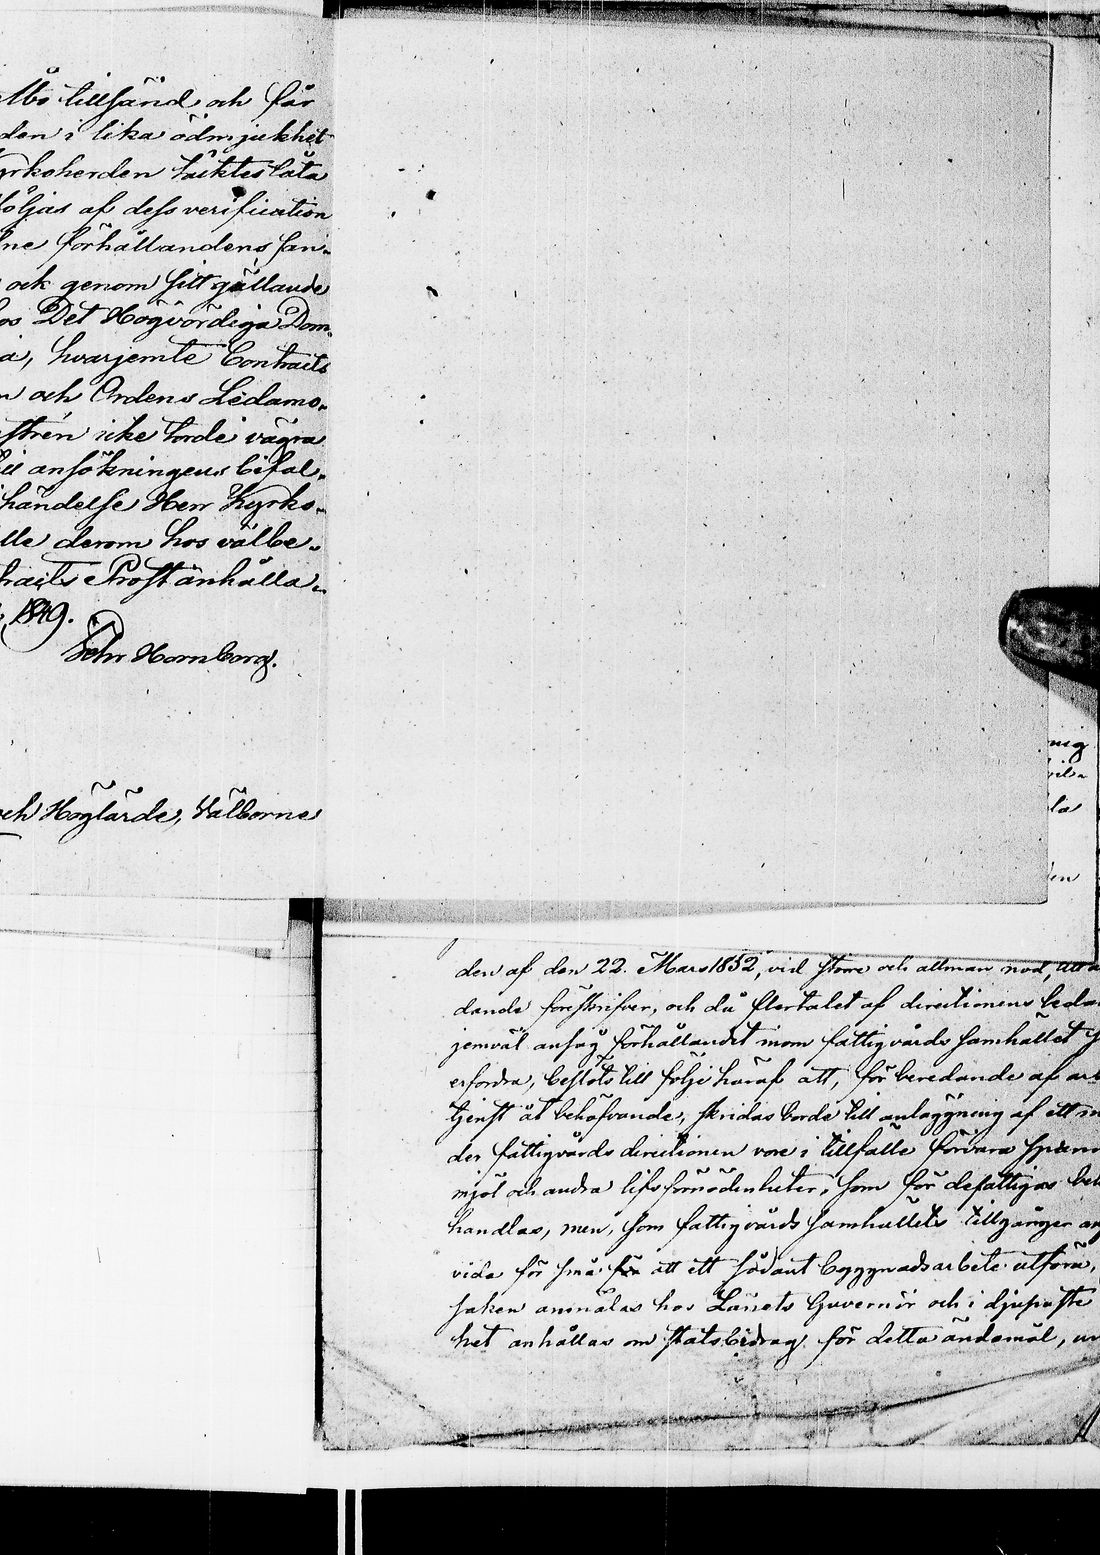 Åbo tillsänd och får
den i lika ödmjukhet
yrkoherden täcktes låta
följas af dess verification
ne förhållandens san-
ock genom sitt gällande
os Det Högvördiga Dom-
a, hvarjemte Contracts
n och Ordens Ledamo-
strén icke torde vägra
till ansökningens bifal-
händelse Herr Kyrko-
lle derom hos välbe-
tracts Prost anhålla.
1849.
Hornborg.
och Höglärde, Välborne
mig
la
en
den af den 22. Mars 1852, vid större och allmän nöd, att
dande föreskrifver, och då flertalet af directionens leda
jemväl ansåg förhållandet inom fattigvårds samhället
erfordra, beslöts till följe häraf att, för beredande af ar
tjenst åt behöfvande, skridas borde till anläggning af ett m
der fattigvårds directionen vore i tillfälle förvara spanm
mjöl och andra lifsförnödenheter, som för defattigas beh
handlas, men, som fattigvårds samhällets tillgångar
vida för små för att ett sådant byggnadsarbete utföra,
saken anmälas hos Länets Guvernör och i djupaste
het anhållas om statsbidrag för detta ändamål,